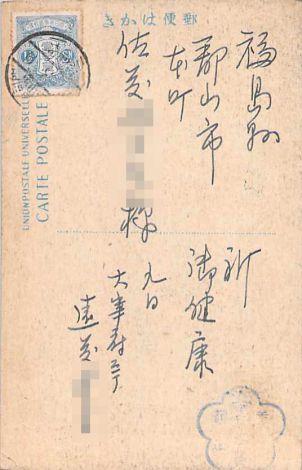 郵便はかき
UNION POSTALE UNIVERSELLE
CARTE POSTALE
福島縣
郡山市
本町
佐藤 様
祈
御健康
九日
遠藤